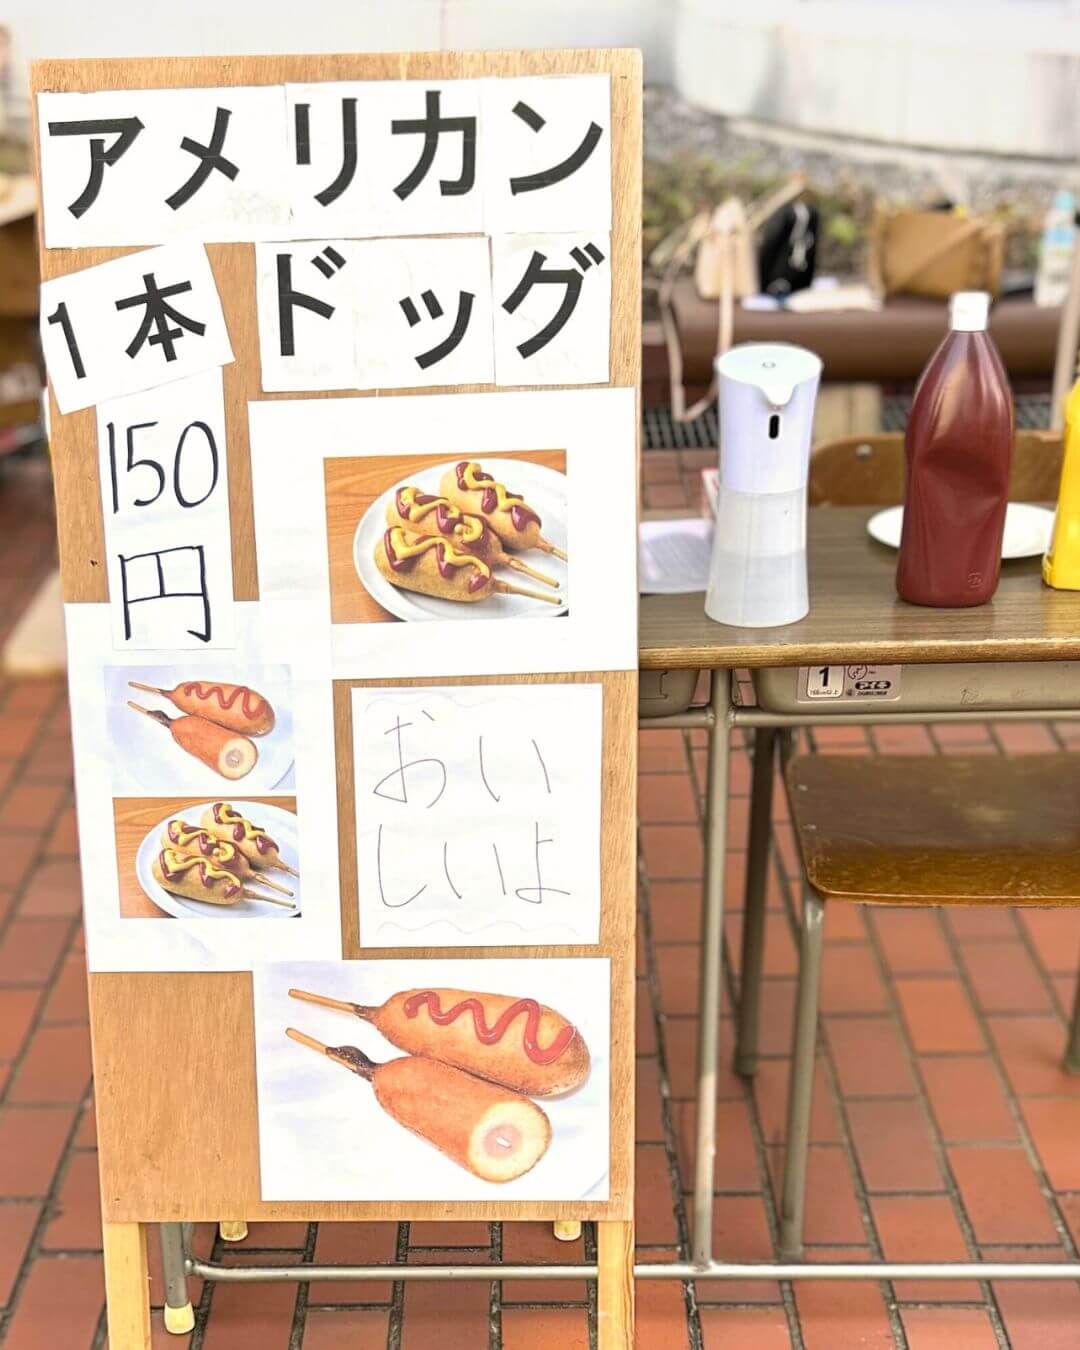 アメリカン
ドッグ
1本
150
円
おい
しいよ
1
アイチ